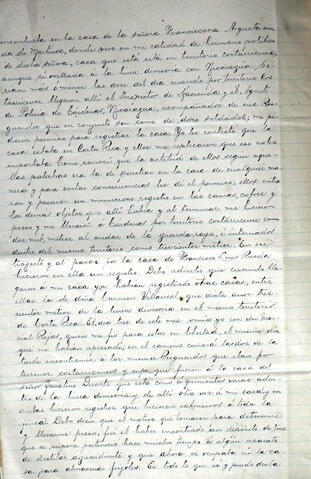 encontraba en la casa de la señora Franciscana Argueta
da de Martinez, donde vivo en mi calidad de hermano político
de dicha señora, casa que está en territorio costarricense
aunque si orillada a la linea divisoria con Nicaragua. Se
rian mas o menos las doce del dia cuando por territorio Cos
tarricense llegaron allí el Inspector de Hacienda y el Agente
de Policia de Cárdenas, Nicaragua, acompañados de sus Res
guardos que en conjunto son como de doce soldados; me pi
dieron permiso para registrar la casa. Yo les contesté que la
casa estaba en Costa Rica y ellos me replicaron que eso no les
importaba. Como conocí que la actitud de ellos según aque
llas palabras era la de entrar en la casa de cualquier ma
nera y para evitar consecuencias les dí el permiso; ellos entra
ron y pasaron un minucioso registro en las camas, cofres y
los demas objetos que allí habia y al terminar me hicieron
preso y me llevaron a Cárdenas por territorio costarricense como
dos mil metros al andar de la guardarraya, é internados
dentro del mismo territorio como trescientos metros. En ese
trayecto y al pasar por la casa de Francisco Luis
hicieron en ella un registro. Debo advertir que cuando lle
garon a mi casa ya habian registrado otras casas, entre
ellas la de doña Carmen Villarreal, que dista unos
cientos metros de la linea divisoria en el mismo territorio
de Costa Rica. El dia tres de este mes
Rojas, quien me puso en libertad, el mismo dia
que me habian apresado, en el camino como á las dos de la
tarde encontramos a los mismos Resguardos que iban por
terreno costarricense y supe que fueron á la casa del
señor Puerto que está como a quinientas varas aden
tro de la linea divisoria y de allí otra vez á mi casa y en
ambas hicieron registros que hicieron extensivos á toda la
finca. Debo decir que el motivo que tomaron para detenerme
y llevarme preso, fué el haber encontrado un depósito de zinc
que se supone perteneció hace mucho tiempo á algun aparato
de destilar aguardiente y que ahora se ocupaba en la ca
sa para almacenar frijoles. Es todo lo que sé y puedo decla